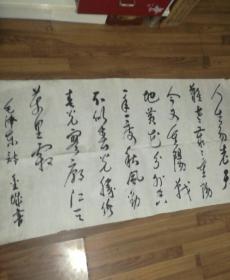 人生易老天
难老岁岁重阳
今又重阳战
地黄花分外香
一年一度秋风劲
不似春光胜似
春光寥廓江天
万里霜
毛泽东诗 书